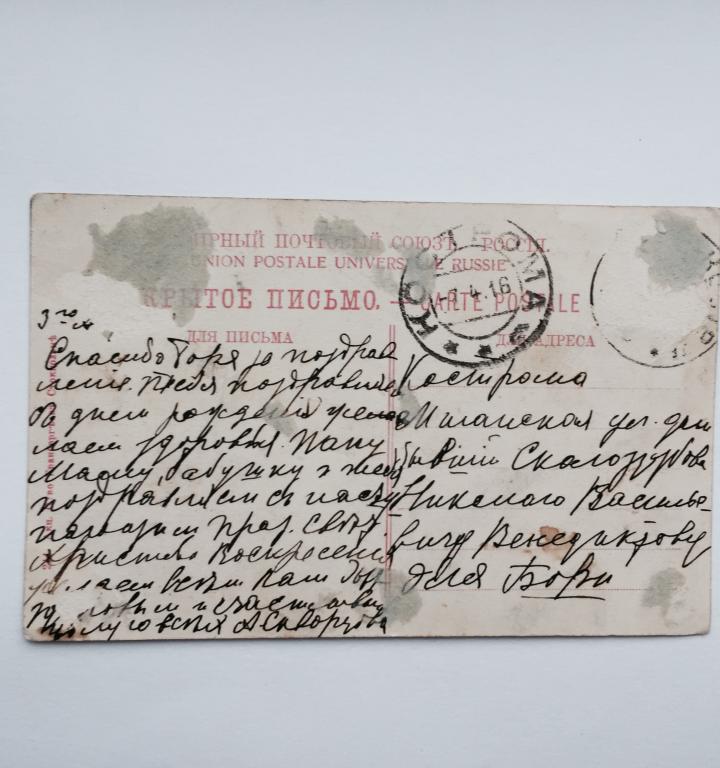 ИРНЫЙ ПОЧТОВЫЙ СОЮЗЪ. РОССІЯ.
UNION POSTALE UNIVERS LE RUSSIE
КРЫТОЕ ПИСЬМО. — CARTE POSTALE
КОСТРОМА
-4.16
ДЛЯ ПИСЬМА
ДЛЯ АДРЕСА
3го
Спасибо Боря за поздрав
ление. Тебя поздравляем
с днем рожденія жела
лаем здоровья. Папу
Маму, бабушку
поздравляем с наступ
праз. Свет.
Христова Воскресенія
желаем всем вам быть
здоровым и счастливым
целую всех А Скворцова
Кострома
Мшанская ул. дом
бывший Скалозубова
Николаю Василье-
вичу Венедиктову
для Бори